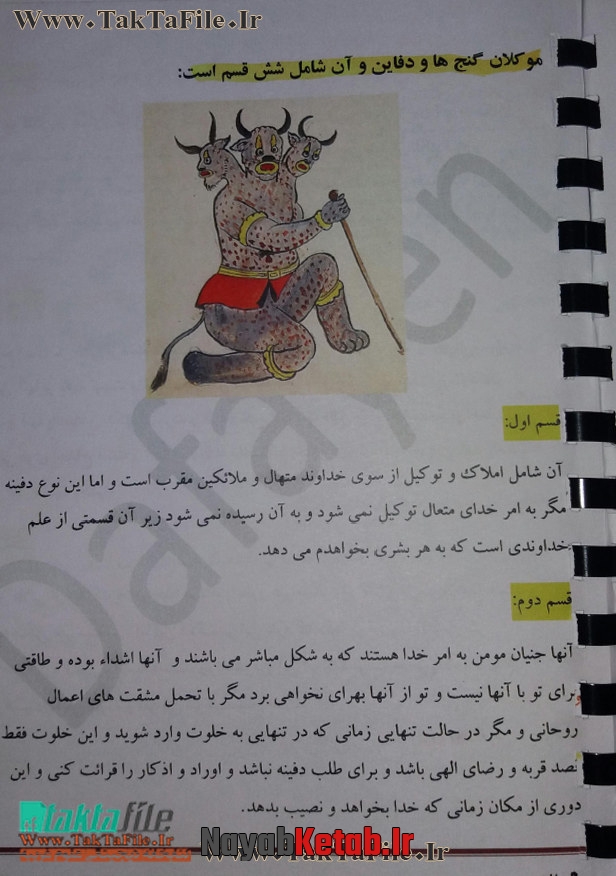 Www.TakTaFile.Ir
Www.TakTaFile.Ir
موکلان گنج ها و دفاین و آن شامل شش قسم است:
Dafayen
قسم اول:
آن شامل املاک و توکیل از سوی خداوند متهال و ملائکین مقرب است و اما این نوع دفینه
مگر به امر خدای متعال توکیل نمی شود و به آن رسیده نمی شود زیر آن قسمتی از علم
خداوندی است که به هر بشری بخواهدم می دهد.
قسم دوم:
آنها جنیان مومن به امر خدا هستند که به شکل مباشر می باشند و آنها اشداء بوده و طاقتی
برای تو با آنها نیست و تو از آنها بهرای نخواهی برد مگر با تحمل مشقت های اعمال
روحانی و مگر در حالت تنهایی زمانی که در تنهایی به خلوت وارد شوید و این خلوت فقط
قصد قربه و رضای الهی باشد و برای طلب دفینه نباشد و اوراد و اذکار را قرائت کنی و این
دوری از مکان زمانی که خدا بخواهد و نصیب بدهد.
taktafile
Www.TakTaFile.Ir
NayabKetab.Ir
Www.TakTaFile.Ir